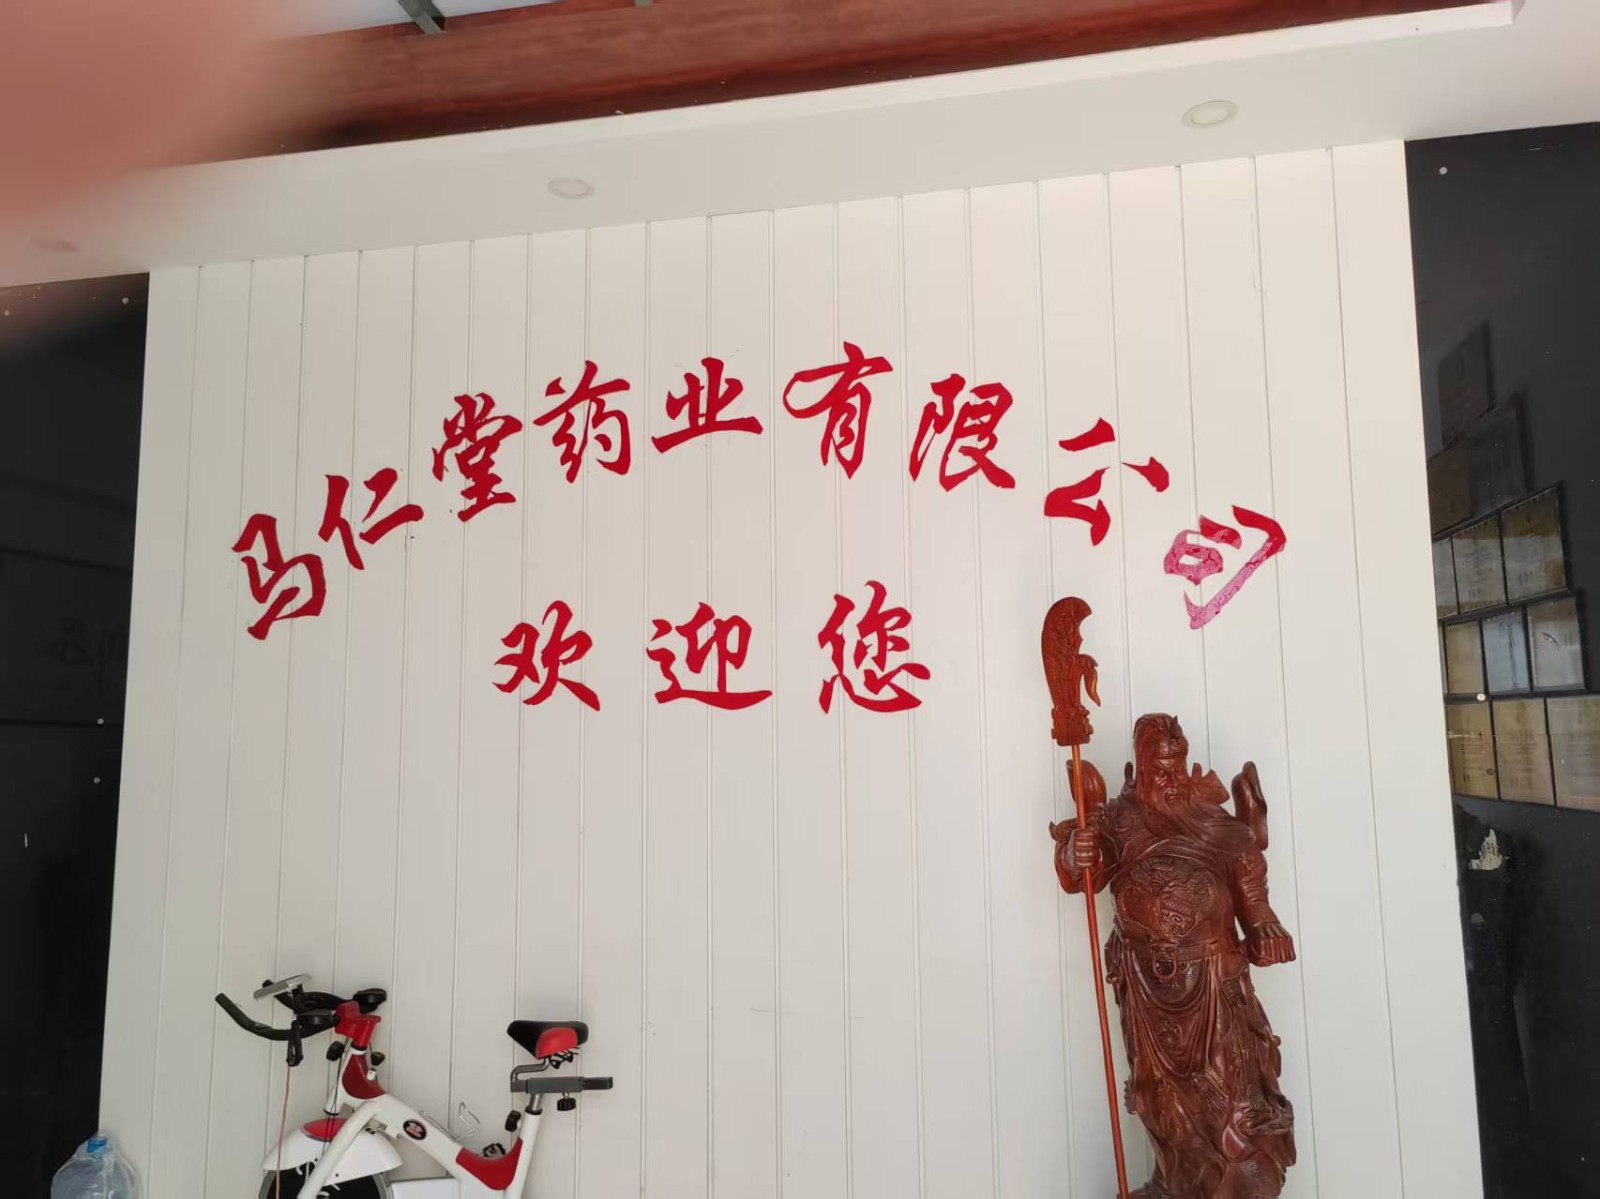 马仁堂药业有限公司
欢迎您